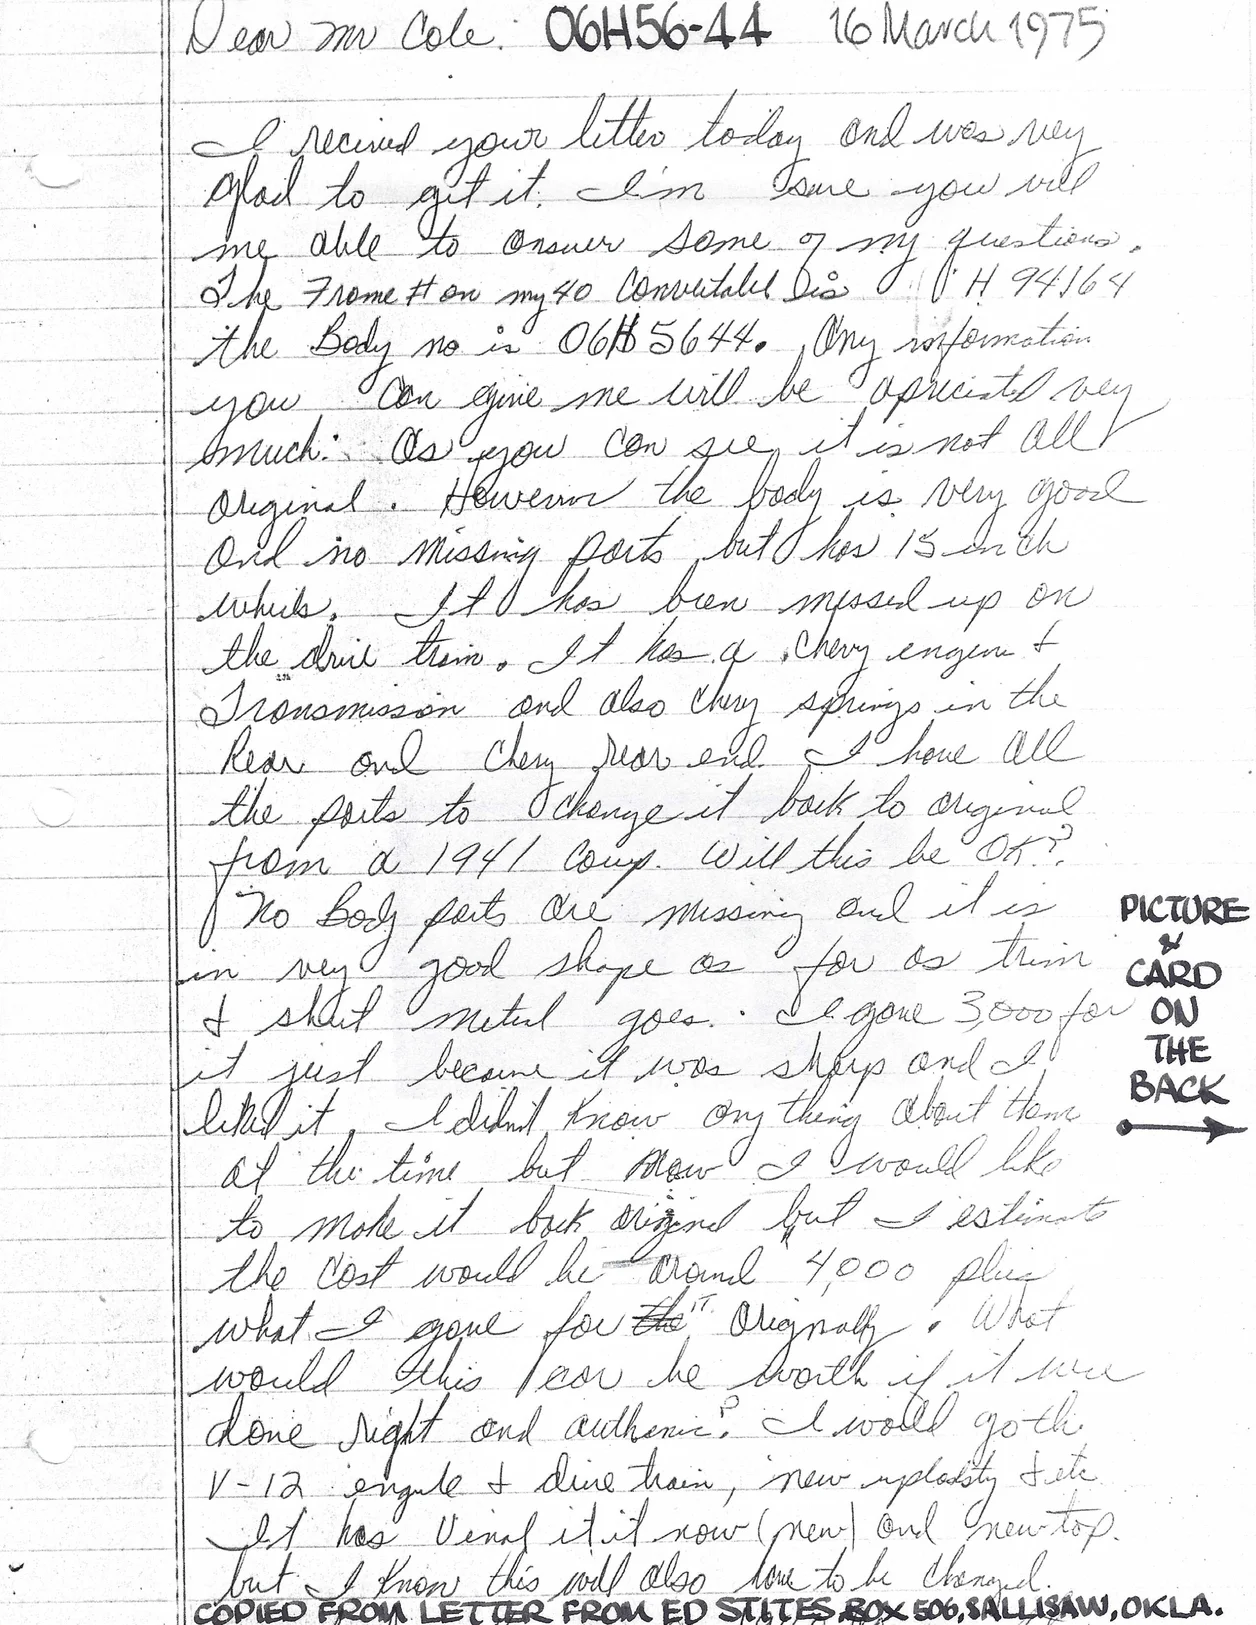 Dear Mr Cole. 06H56-44 16 March 1975
I recived your letter today and was vey
glad to get it. I'm sure you will
me able to onsuer some of my questions.
The Frame # on my 40 Convertable is H 94164
the Body no is 06H5644. Any information
you can give me will be apriciated vey
much. As you can see, it is not all
original. However the body is very good
and no missing parts but has 15 inch
wheels. It has been messed up on
the drive train. It has a Chevy engine &
Transmission and also Chevy springs in the
Rear and Chevy rear end. I have all
the parts to change it back to original
from a 1941 Coup. Will this be OK?
No Body parts are missing and it is
in vey good shape as far as trim
& sheet metal goes. I gave 3,000 for
it just because it was sharp and I
liked it. I didn't know any thing about them
at the time but now I would like
to make it back original but I estimate
the cost would be around 4,000 plus
what I gave for the IT Originally. What
would this car be worth if it were
done right and authenic? I would go the
V-12 engine & drive train, new & etc.
It has Vinal it it now (new) and new top.
but I know this will also have to be changed.
PICTURE
&
CARD
ON
THE
BACK
COPIED FROM LETTER FROM ED STITES, BOX 506, SALLISAW, OKLA.